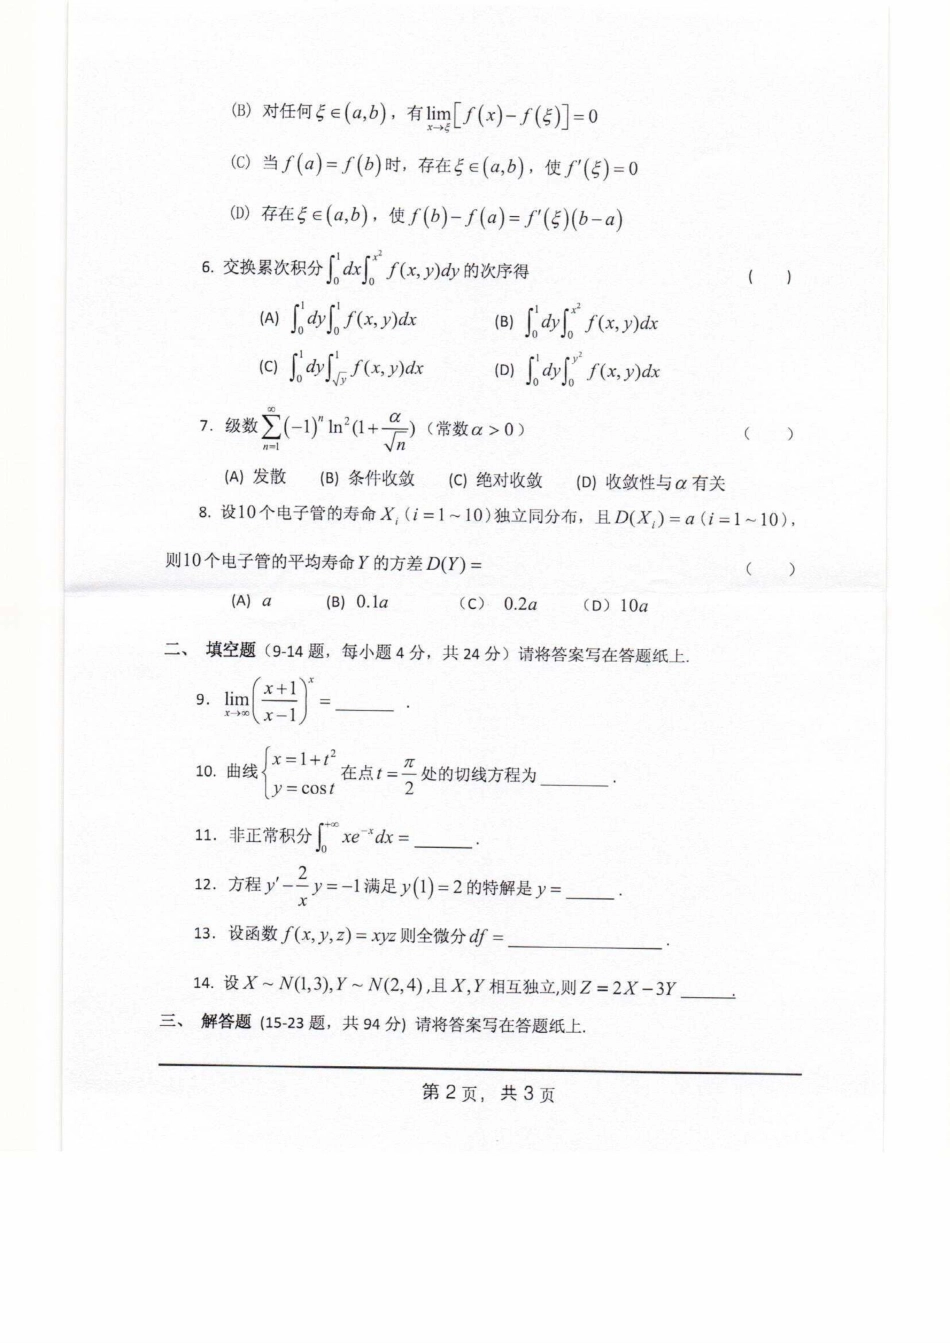 (B) 对任何ξ∈(a,b)，有lim_{x→ξ}[f(x)−f(ξ)]=0
(C) 当f(a)=f(b)时，存在ξ∈(a,b)，使f′(ξ)=0
(D) 存在ξ∈(a,b)，使f(b)−f(a)=f′(ξ)(b−a)
6. 交换累次积分∫_0^1 dx∫_0^{x^2} f(x,y)dy的次序得 ( )
(A) ∫_0^1 dy∫_0^1 f(x,y)dx (B) ∫_0^1 dy∫_0^{x^2} f(x,y)dx
(C) ∫_0^1 dy∫_{√y}^1 f(x,y)dx (D) ∫_0^1 dy∫_0^{y^2} f(x,y)dx
7. 级数∑_{n=1}^∞ (−1)^n ln^2(1+α/√n)（常数α>0） ( )
(A) 发散 (B) 条件收敛 (C) 绝对收敛 (D) 收敛性与α有关
8. 设10个电子管的寿命X_i (i=1~10)独立同分布，且D(X_i)=a (i=1~10)，
则10个电子管的平均寿命Y的方差D(Y)= ( )
(A) a (B) 0.1a （C） 0.2a （D）10a
二、 填空题（9-14 题，每小题 4 分，共 24 分）请将答案写在答题纸上.
9. lim_{x→∞}((x+1)/(x−1))^x = ______ .
10. 曲线{x=1+t^2, y=cos t 在点t=π/2处的切线方程为______ .
11. 非正常积分∫_0^{+∞} xe^{−x}dx = ______.
12. 方程y′−(2/x)y=−1满足y(1)=2的特解是y=_____ .
13. 设函数f(x,y,z)=xyz则全微分df =______________.
14. 设X~N(1,3),Y~N(2,4),且X,Y相互独立,则Z=2X−3Y _____.
三、 解答题 (15-23 题，共 94 分) 请将答案写在答题纸上.
第 2 页，共 3 页